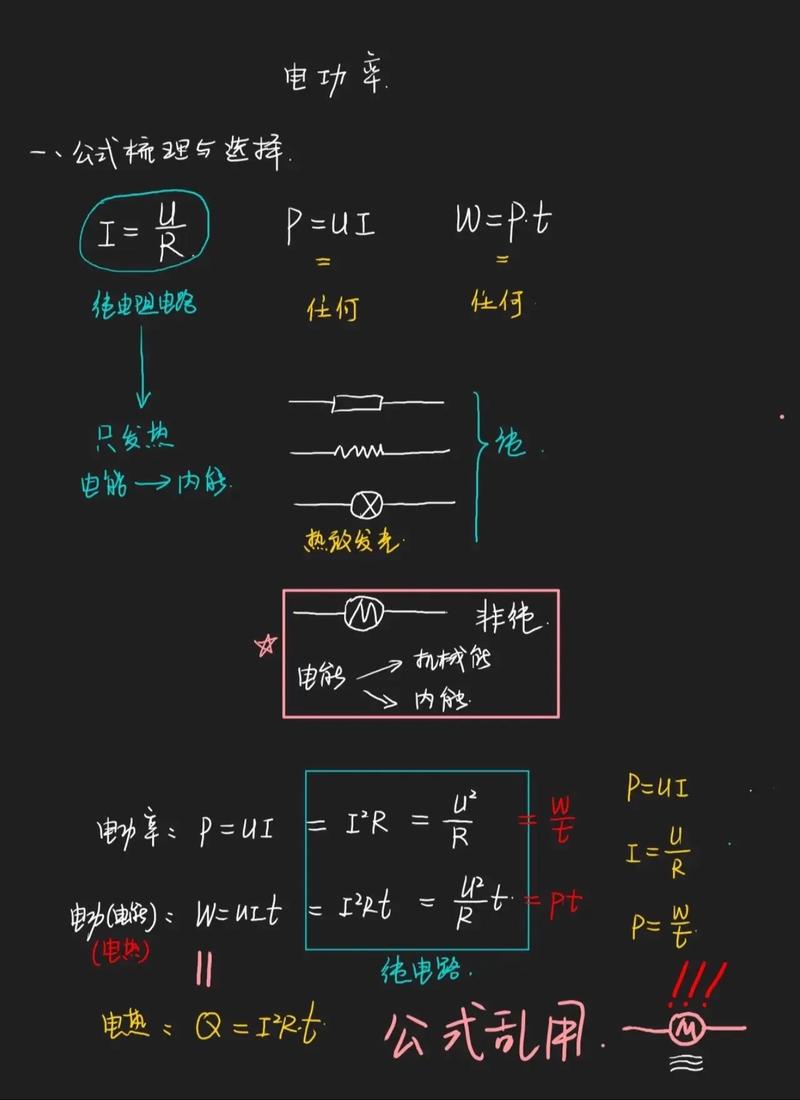 电功率.
一、公式梳理与选择.
I=U/R P=UI W=P·t
纯电阻电路 = 任何 = 任何.
只发热
电能→内能.
纯.
M 非纯.
热致发光.
电能 机械能
内能.
电功率: P=UI = I²R = U²/R = W/t
电功(电能): W=UIt = I²Rt = U²/R t = Pt
(电热)
纯电路.
电热: Q=I²R·t
P=UI
I=U/R
P=W/t.
公式乱用.
!!!
M